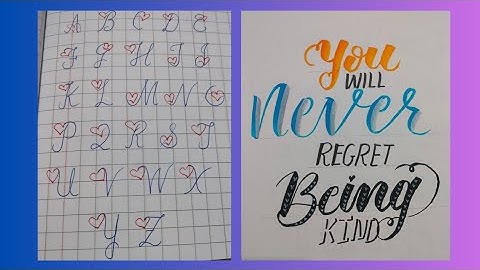 A B C D E
F G H I J
K L M N O
P Q R S T
U V W X
Y Z
You
WILL
Never
REGRET
Being
KIND